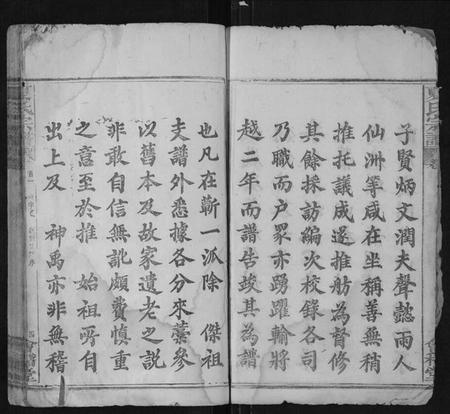 子賢炳文潤夫聲懿雨人
仙洲等咸在坐稱善無稍
推托議成遂推舫為督修
其餘採訪編次校錄各司
乃職而户眾亦踴躍輸將
越二年而譜告竣其為譜
也凡在蘄一派除 傑祖
支譜外悉據各分來藁參
以舊本及故家遺老之說
非敢自信無訛頗費慎重
之意至於推 始祖所自
出上及 神禹亦非無稽
會稽堂